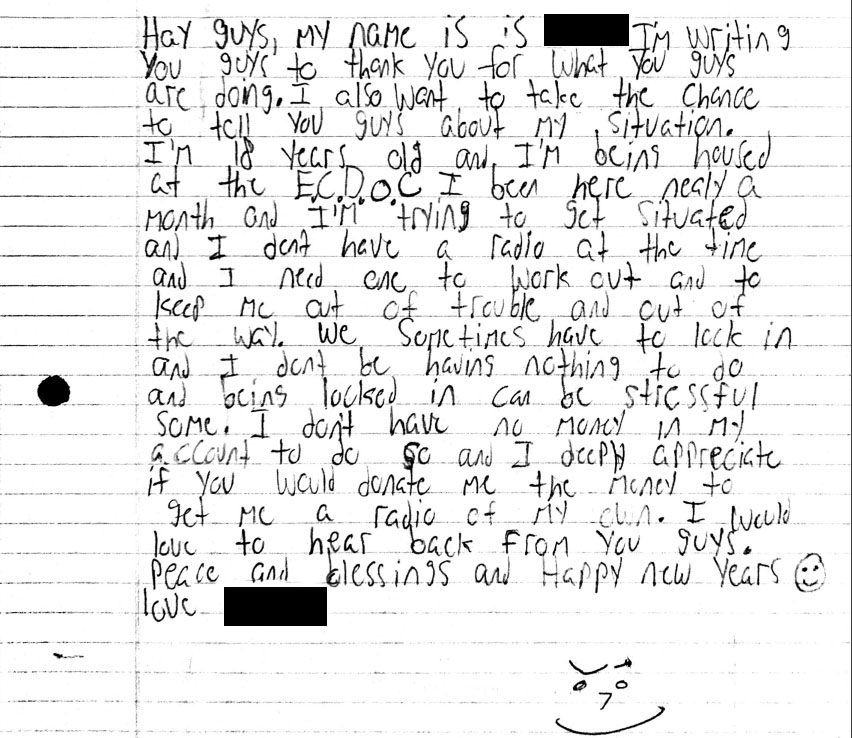 Hay guys, my name is is I'm writing
You guys to thank you for what you guys
are doing. I also want to take the chance
to tell you guys about my situation.
I'm 18 years old and I'm being housed
at the E.C.D.O.C I been here nealy a
month and I'm trying to get situated
and I dont have a radio at the time
and I need one to work out and to
keep me out of trouble and out of
the way. We sometimes have to lock in
and I dont be having nothing to do
and being locked in can be stressful
some. I don't have no money in my
account to do so and I deeply appreciate
if you would donate me the money to
get me a radio of my own. I would
love to hear back from you guys.
Peace and blessings and Happy new years
love